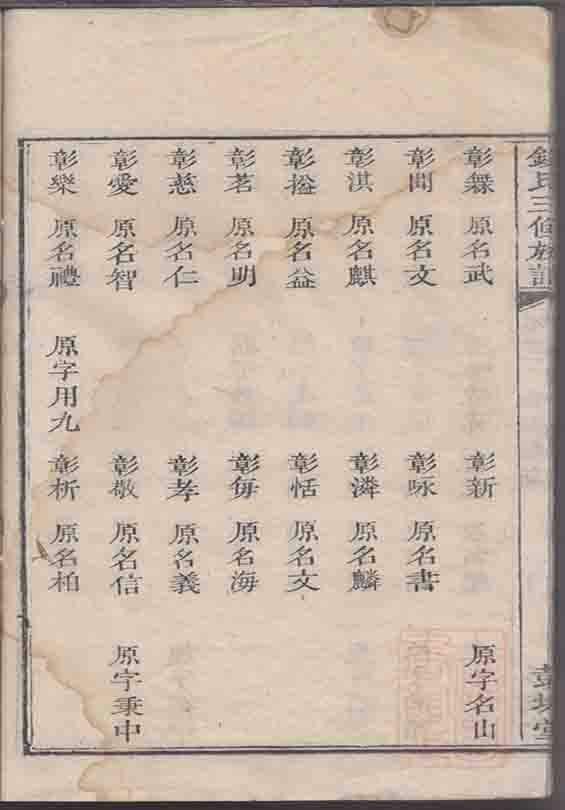 氏三修族
彰彝 原名武 彰新 原名山
彰聞 原名文 彰咏 原名書
彰淇 原名麒 彰潾 原名麟
彰搤 原名益 彰恬 原名文
彰茗 原名明 彰每 原名海
彰慈 原名仁 彰孝 原名義
彰愛 原名智 彰敬 原名信 原字秉中
彰樂 原名禮 原字用九 彰析 原名柏
堂